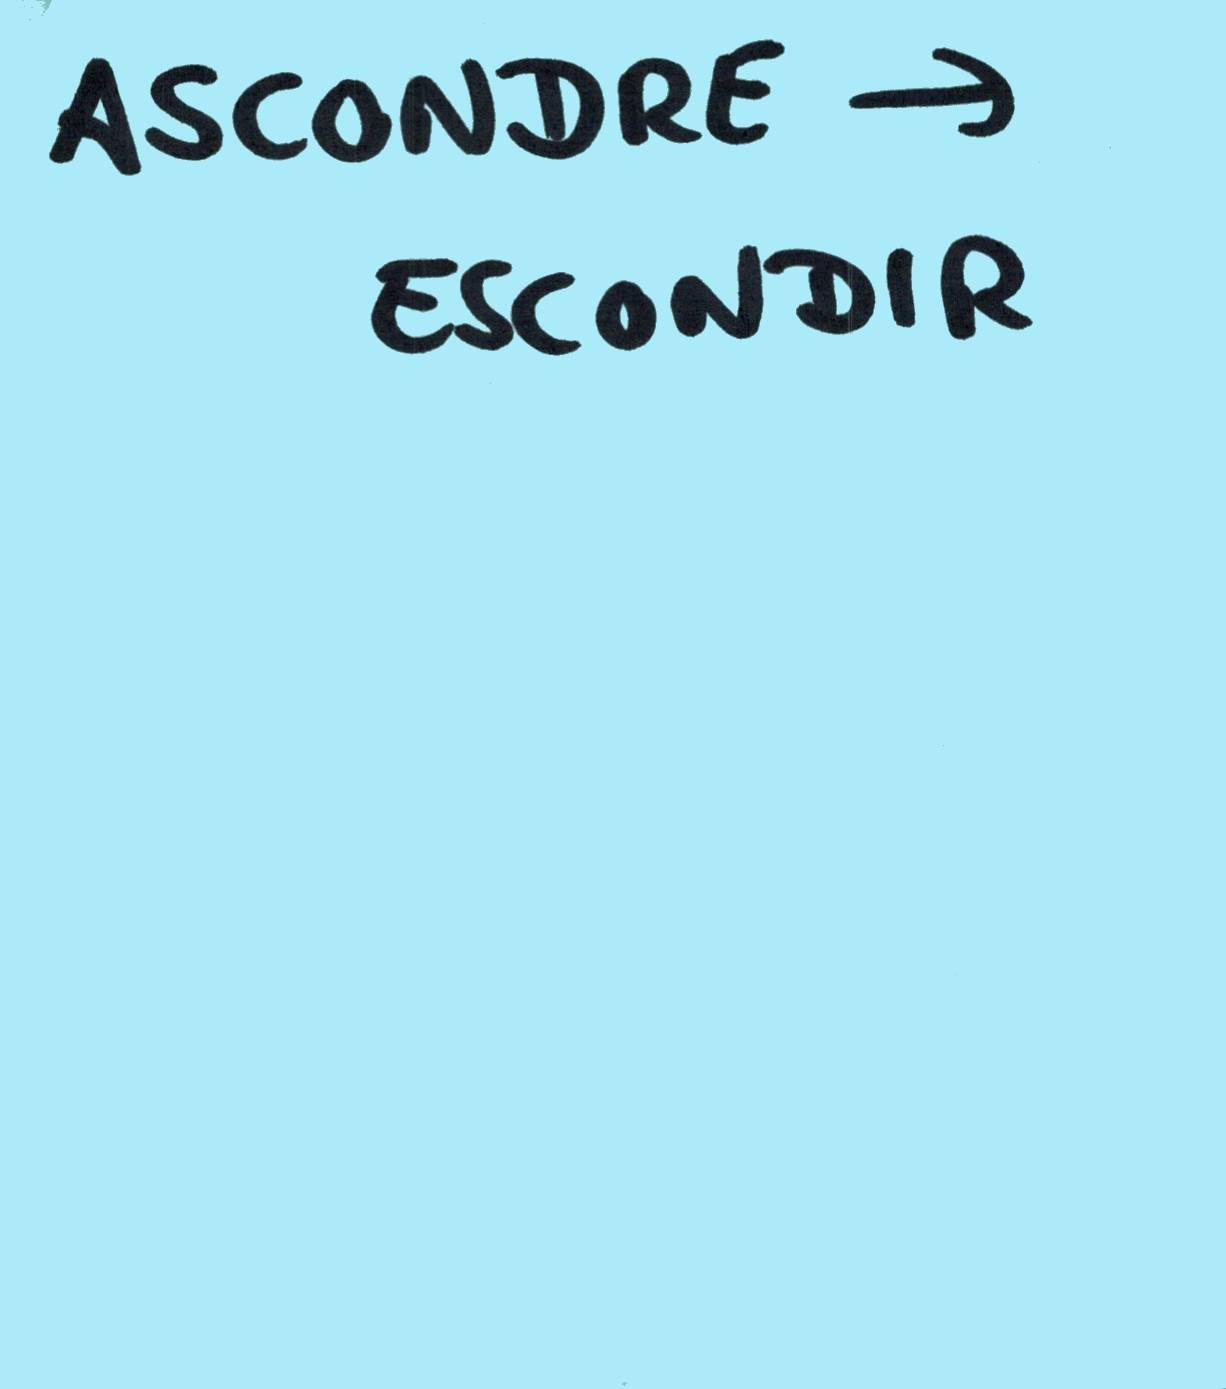 ASCONDRE →
ESCONDIR